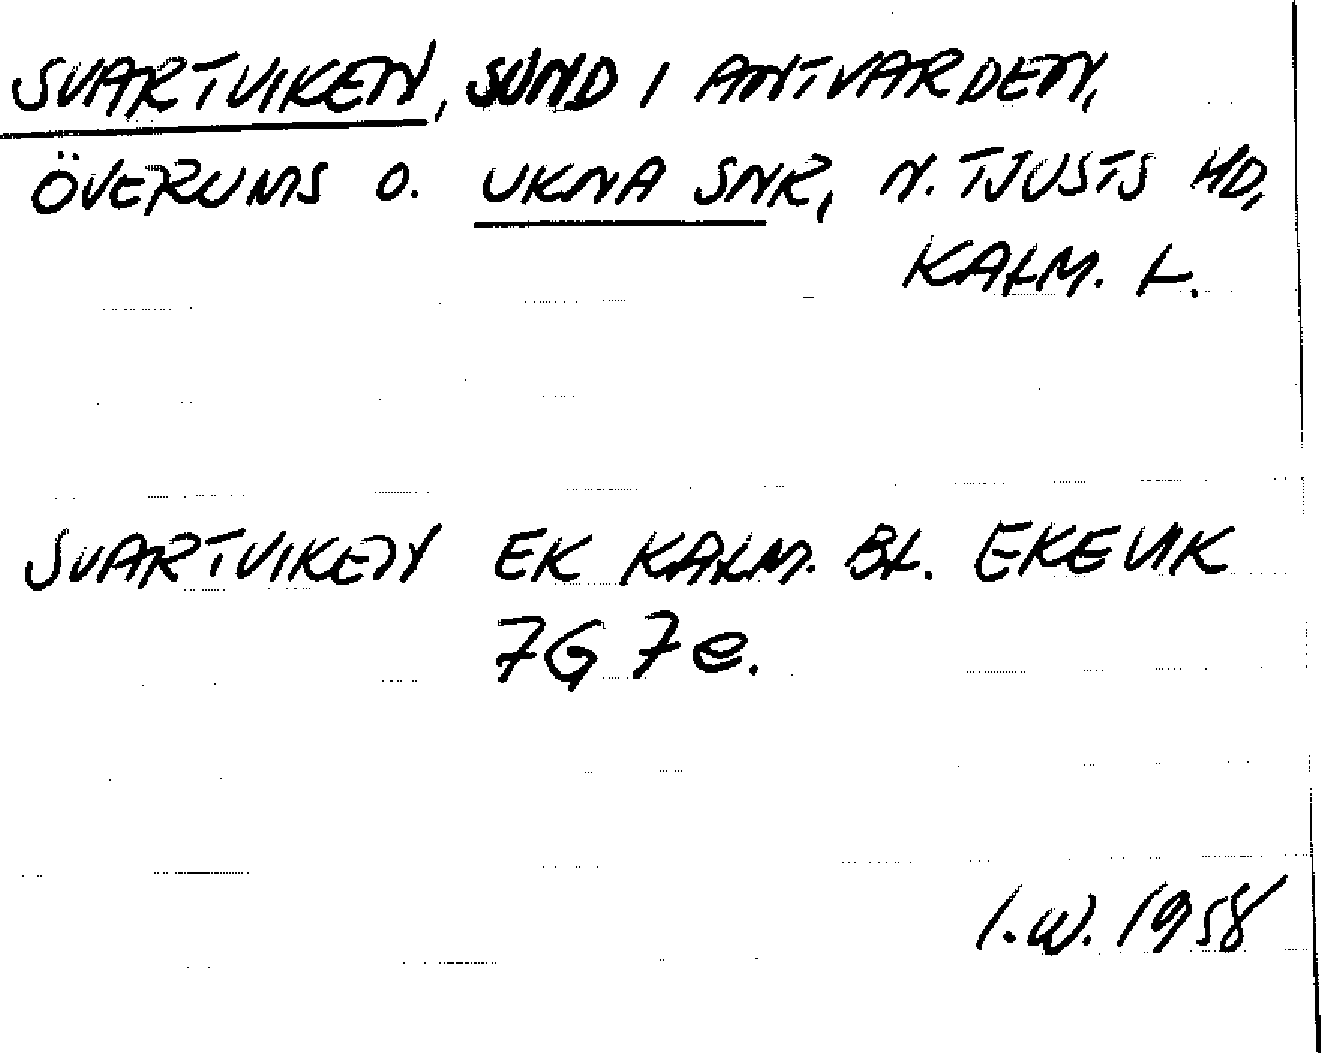 SVARTVIKEN, SUND I ANTVARDEN,
ÖVERUMS O. UKNA SNR, N. TJUSTS HD,
KALM. L.
SVARTVIKEN EK KALM. BL. EKEVIK
7G 7e.
I.W. 1958